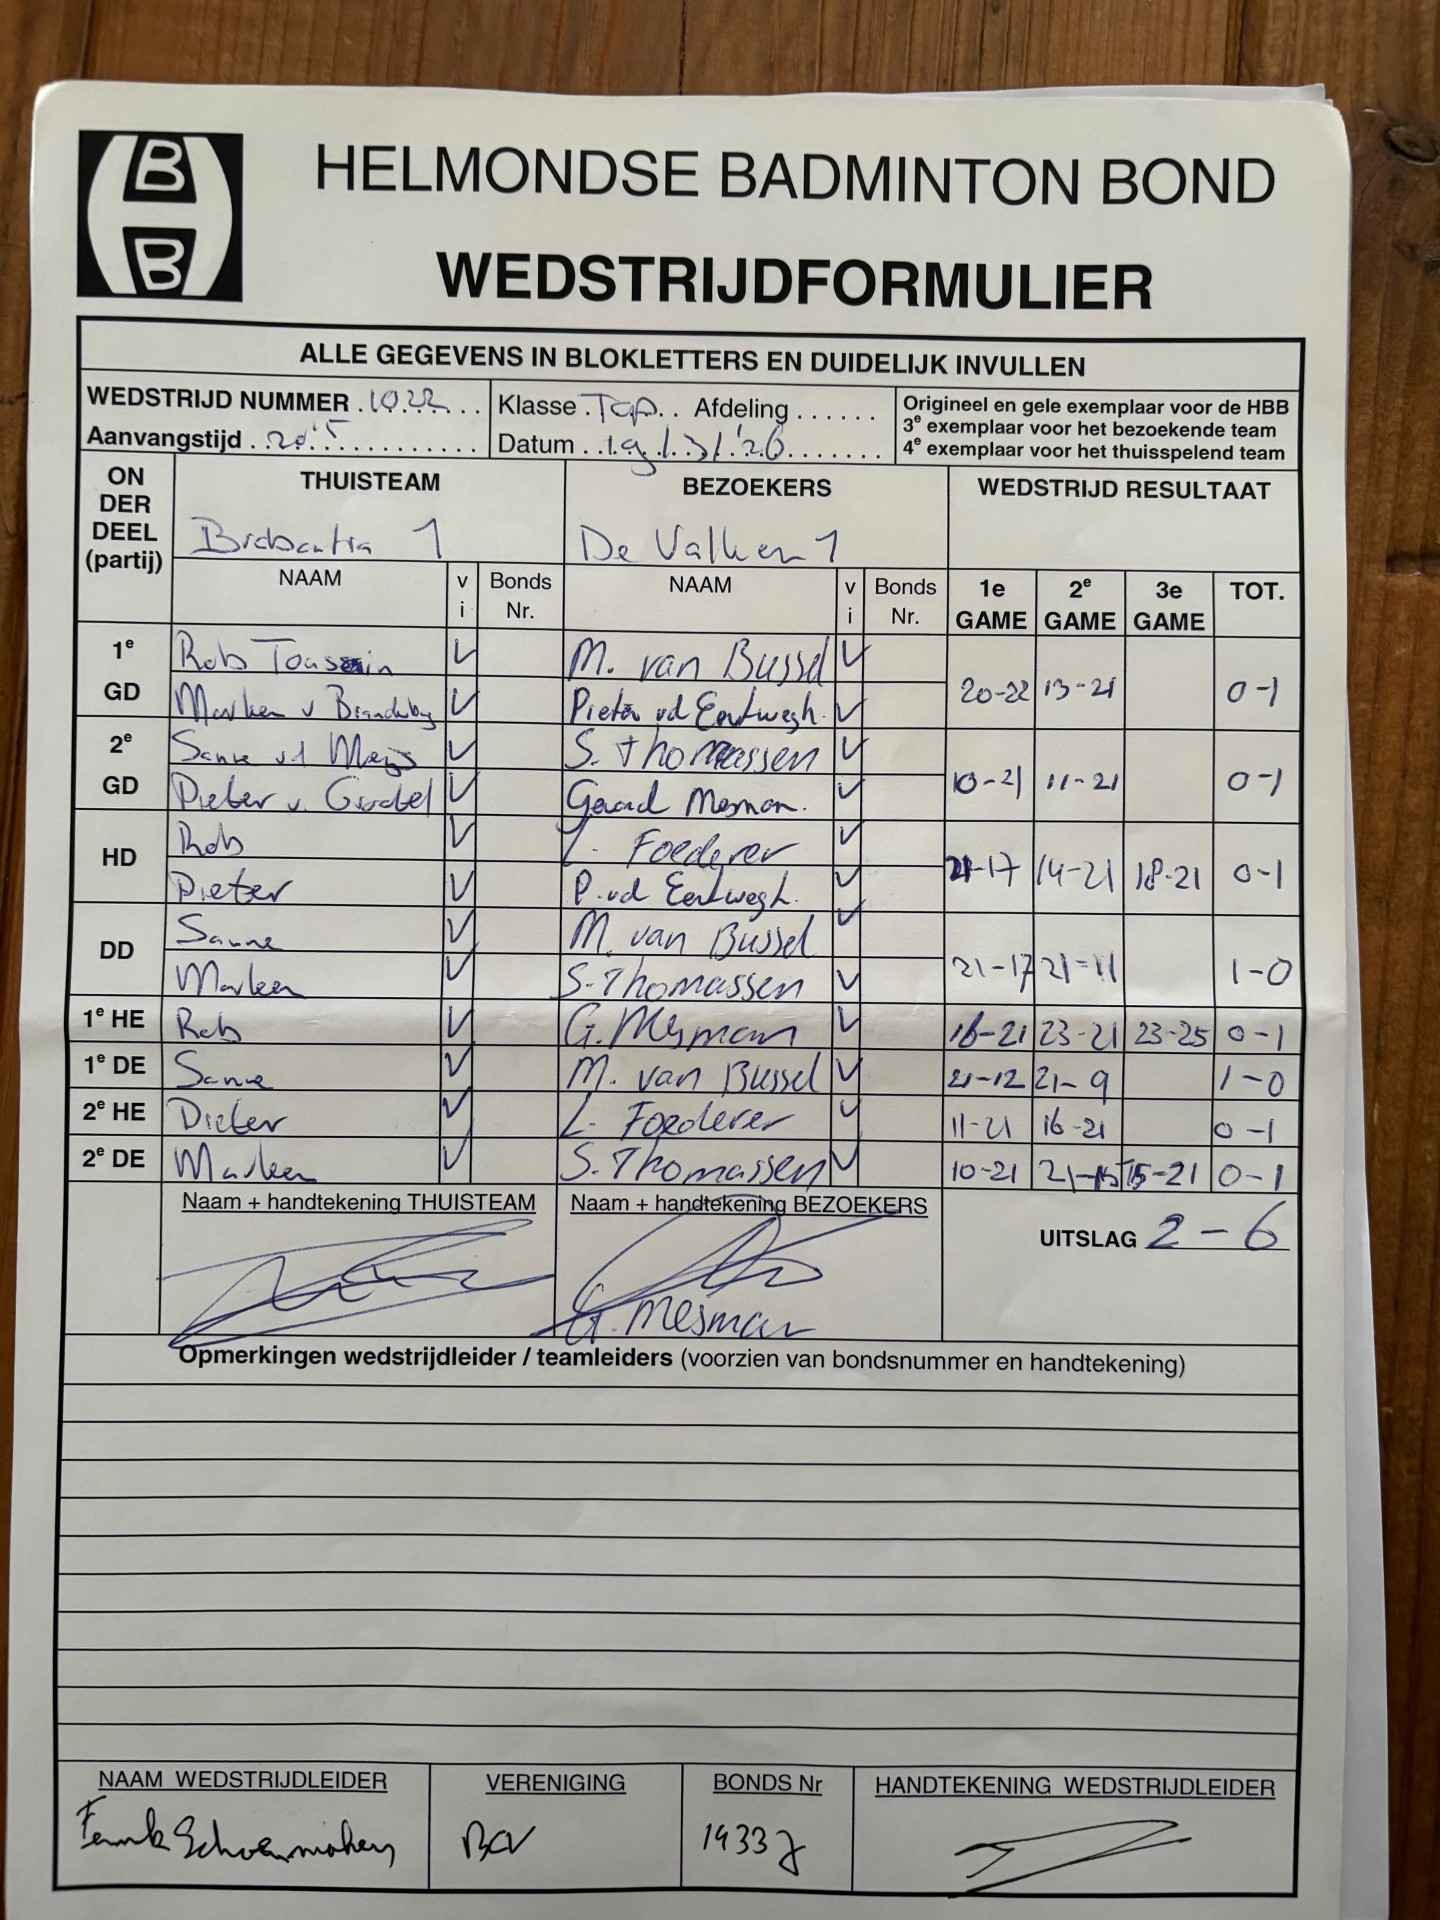 HELMONDSE BADMINTON BOND
WEDSTRIJDFORMULIER
ALLE GEGEVENS IN BLOKLETTERS EN DUIDELIJK INVULLEN
WEDSTRIJD NUMMER 1022 Klasse Top Afdeling
Aanvangstijd 20:15 Datum 19/3/'26
Origineel en gele exemplaar voor de HBB
3e exemplaar voor het bezoekende team
4e exemplaar voor het thuisspelend team
ON DER DEEL (partij) THUISTEAM BEZOEKERS WEDSTRIJD RESULTAAT
Brabantia 1 De Valken 1
NAAM vi Bonds Nr. NAAM vi Bonds Nr. 1e GAME 2e GAME 3e GAME TOT.
1e GD Rob Toussain M. van Bussel
Marleen v Pieter vd Eertwegh. 20-22 13-21 0-1
2e GD Sanne vd S. Thomassen
Pieter v. Gerard Mesman. 10-21 11-21 0-1
HD Rob L. Foederer
Pieter P. vd Eertwegh. 21-17 14-21 18-21 0-1
DD Sanne M. van Bussel
Marleen S. Thomassen 21-17 21-11 1-0
1e HE Rob G. Mesman 16-21 23-21 23-25 0-1
1e DE Sanne M. van Bussel 21-12 21-9 1-0
2e HE Pieter L. Foederer 11-21 16-21 0-1
2e DE Marleen S. Thomassen 10-21 21-15 15-21 0-1
Naam + handtekening THUISTEAM Naam + handtekening BEZOEKERS
UITSLAG 2-6
G. Mesman
Opmerkingen wedstrijdleider / teamleiders (voorzien van bondsnummer en handtekening)
NAAM WEDSTRIJDLEIDER VERENIGING BONDS Nr HANDTEKENING WEDSTRIJDLEIDER
BCV